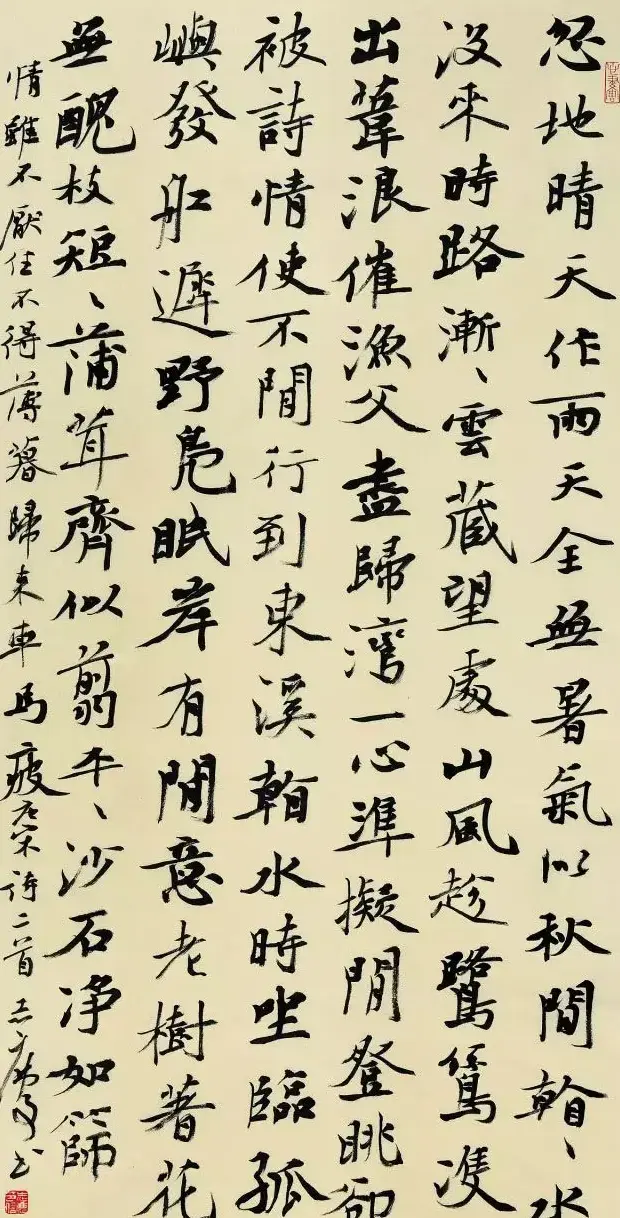 忽地晴天作雨天全無暑氣似秋間看ヽ水
沒來時路漸ヽ雲藏望處山風趁鷺鷥雙
出葦浪催漁父盡歸灣一心準擬閒登眺卻
被詩情使不閒行到東溪看水時坐臨孤
嶼發船遲野鳧眠岸有閒意老樹著花
無醜枝短ヽ蒲茸齊似翦平ヽ沙石淨如篩
情雖不厭住不得薄暮歸來車馬疲右宋詩二首 書